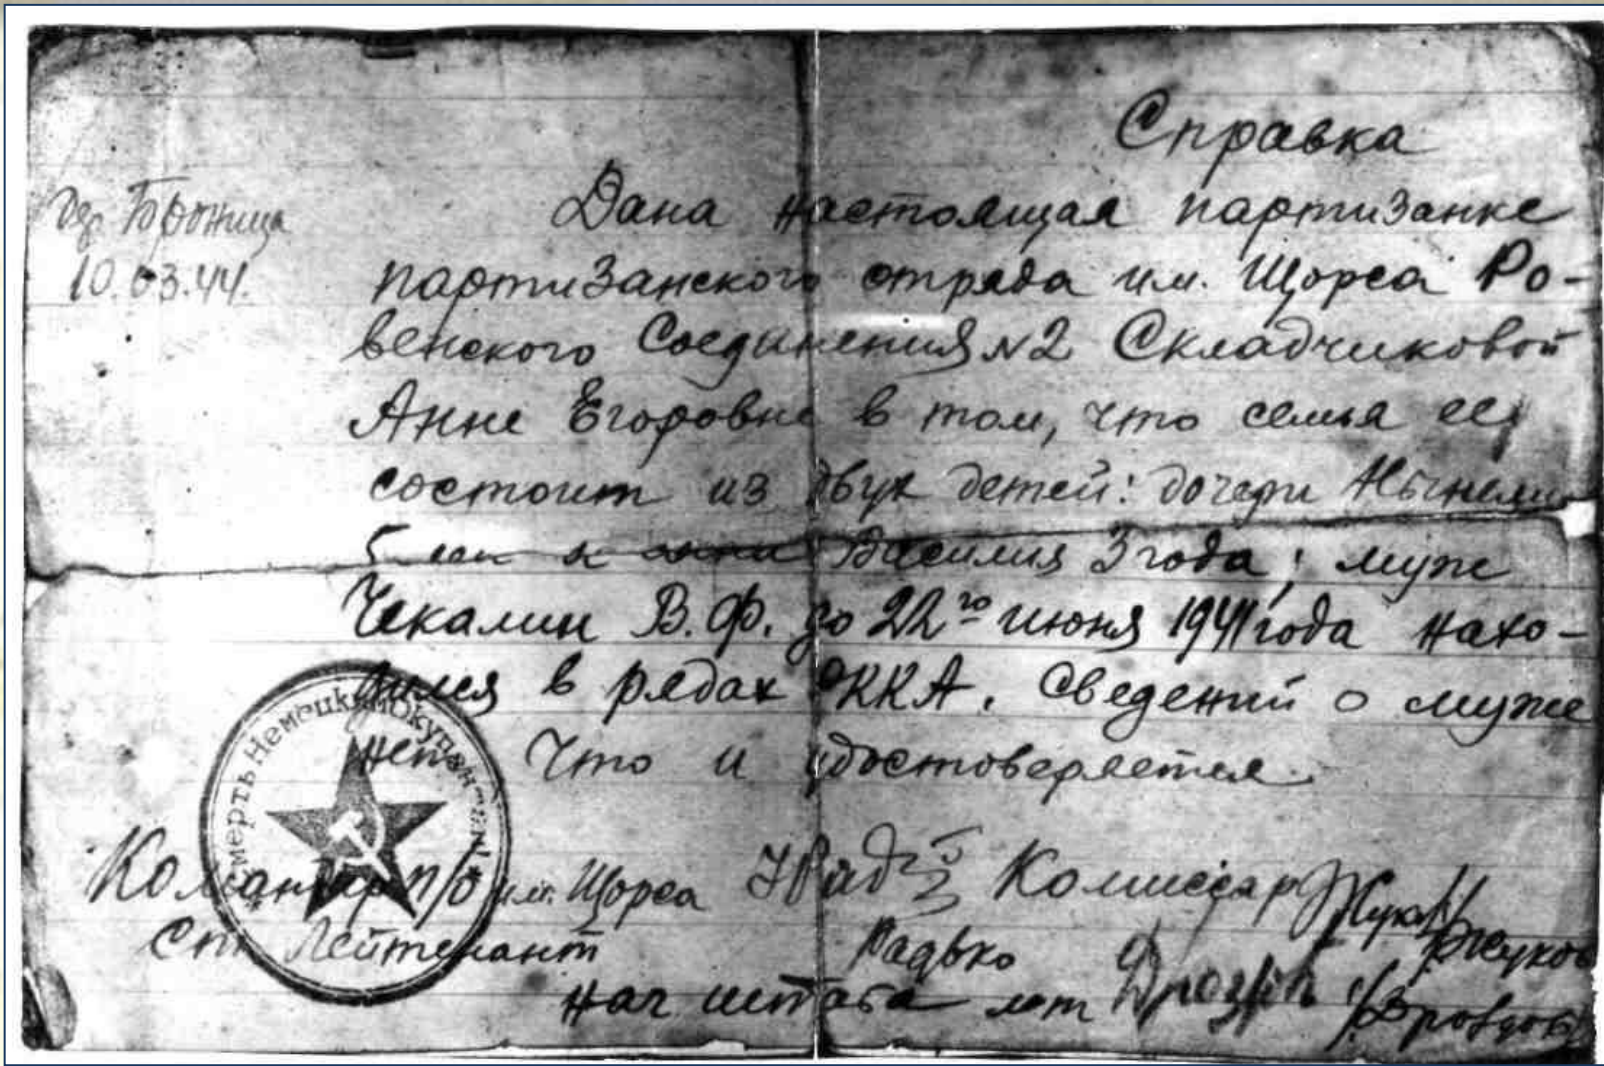 Справка
дер. Броница
10.03.44.
Дана настоящая партизанке
партизанского отряда им. Щорса Ро-
венского Соединения №2 Складчиковой
Анне Егоровне в том, что семья ее
состоит из двух детей: дочери
5 лет и сына Василия 3 года; муж
Чекалин В.Ф. до 22го июня 1941 года нахо-
дился в рядах РККА. Сведений о муже
нет. Что и удостоверяется.
Смерть Немецким Окупантам!
Командир п/о им. Щорса Комиссар
Ст. Лейтенант Радько Жуков
Нач штаба лет Дроздов